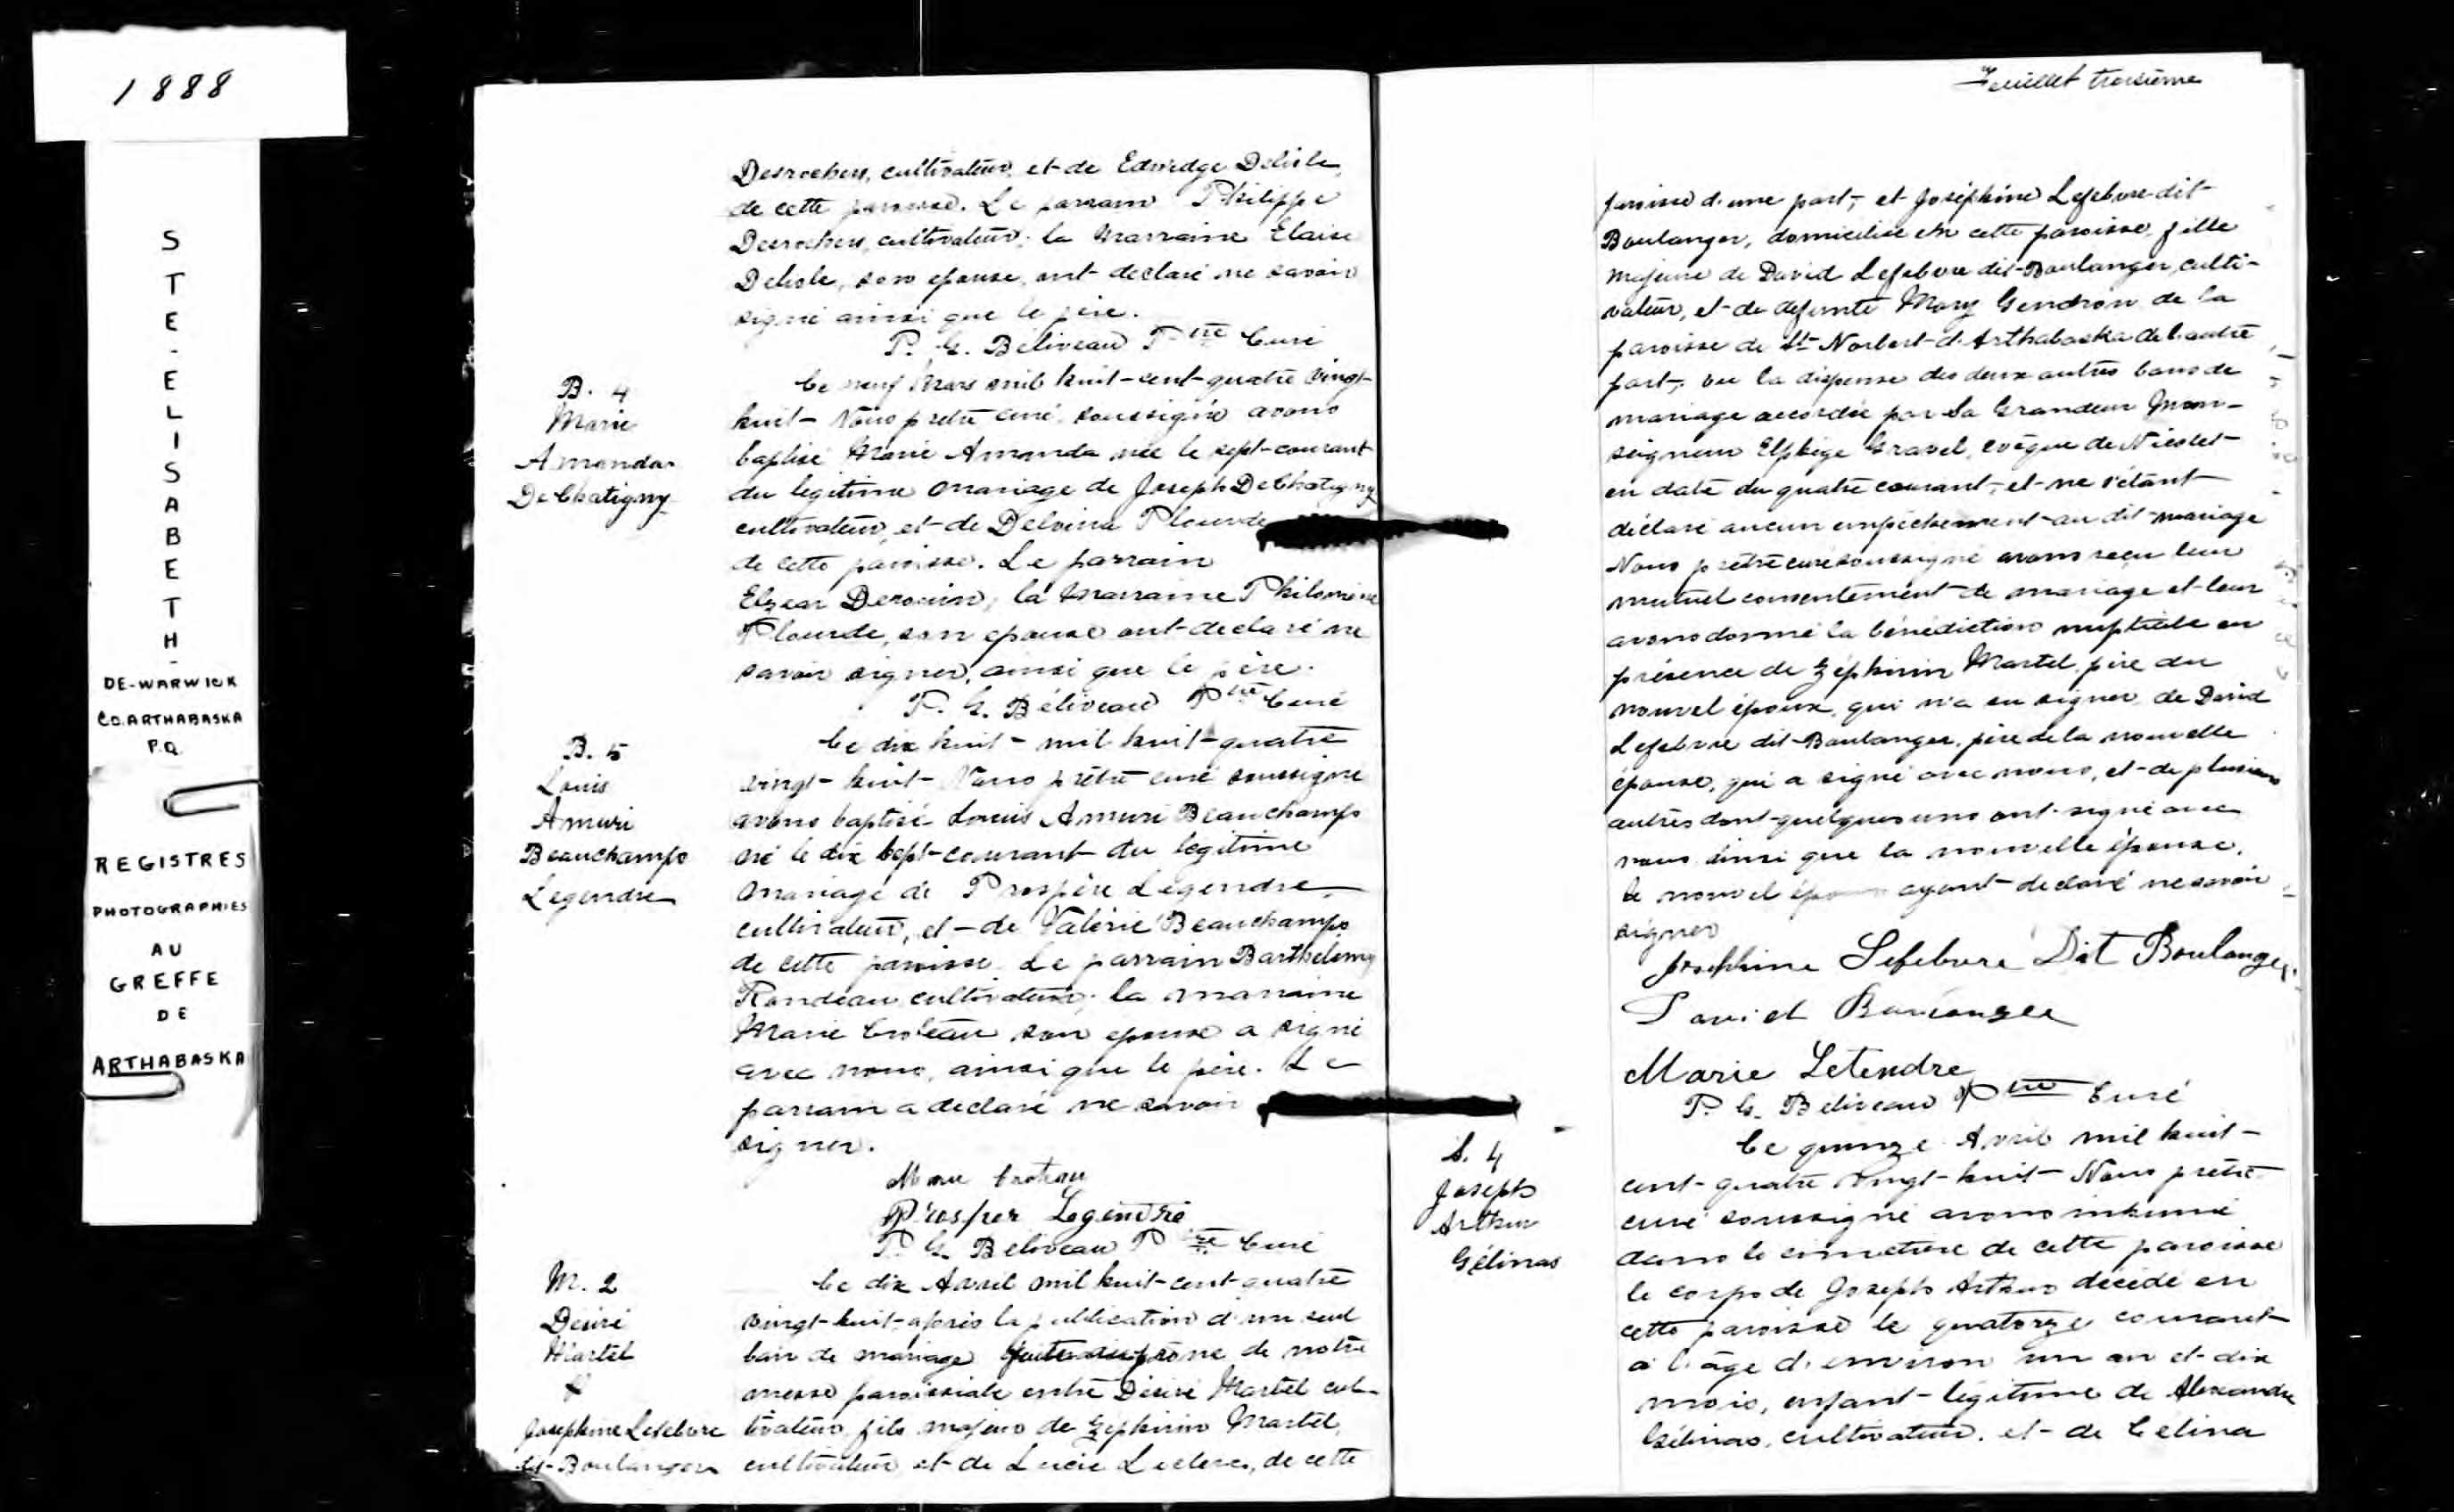 1888
STE-ELISABETH-
DE-WARWICK
CO. ARTHABASKA
P.Q.
REGISTRES
PHOTOGRAPHIES
AU
GREFFE
DE
ARTHABASKA
Desrochers, cultivateur, et de Edwidge Delisle,
de cette paroisse. Le parrain Philippe
Desrochers, cultivateur; la marraine Elaise
Delisle, son epouse, ont declaré ne savoir
signé ainsi que le père.
P. G. Béliveau Ptre Curé
B. 4
Marie
Amanda
DeChatigny
Ce neuf Mars mil huit-cent-quatre vingt-
huit- Nous prêtre curé soussigné avons
baptisé Marie Amanda née le sept-courant
du legitime mariage de Joseph DeChatigny
cultivateur et de Delvina Plourde
de cette paroisse. Le parrain
Elzear Derouin, la marraine Philomène
Plourde, son epouse ont declaré ne
savoir signer, ainsi que le père.
P. G. Béliveau Ptre Curé
B. 5
Louis
Amuri
Beauchamps
Legendre
Ce dix huit- mil huit-quatre
vingt-huit- Nous prêtre curé soussigné
avons baptisé Louis Amuri Beauchamps
né le dix sept-courant du légitime
mariage de Prospère Légendre,
cultivateur, et-de Valérie Beauchamps
de cette paroisse. Le parrain Barthelemy
Rondeau cultivateur; la marraine
Marie Croteau son epouse a signé
avec nous, ainsi que le père. Le
parrain a declaré ne savoir
signer.
Marie Croteau
Prosper Legendre
P. G. Béliveau Ptre Curé
M. 2
Désiré
Martel
&
Josephine Lefebvre
dit-Boulanger
Ce dix Avril mil huit-cent-quatre
vingt-huit, après la publication d'un seul
ban de mariage faite au prône de notre
messe paroissiale entre Désiré Martel cul-
tivateur fils majeur de Zephirin Martel,
cultivateur et de Lucie Leclerc, de cette
Feuillet troisième
paroisse d'une part, et Joséphine Lefebvre dit-
Boulanger, domiciliée en cette paroisse, fille
majeure de David Lefebvre dit-Boulanger, culti-
vateur, et-de defunte Mary Gendron de la
paroisse de St-Norbert-d'Arthabaska de l'autre
part, vu la dispense des deux autres bans de
mariage accordée par Sa Grandeur Mon-
seigneur Elphège Gravel, evêque de Nicolet-
en date du quatre courant, et-ne s'étant
déclaré aucun empêchement-au dit-mariage
Nous prêtre curé soussigné avons reçu leur
mutuel consentement de mariage et-leur
avons donné la bénédiction nuptiale en
présence de Zéphirin Martel, père du
nouvel époux, qui n'a su signer, de David
Lefebvre dit-Boulanger, père de la nouvelle
épouse, qui a signé avec nous, et-de plusieurs
autres dont-quelques uns ont-signé avec
nous ainsi que la nouvelle épouse,
le nouvel époux ayant-declaré ne savoir
signer
Josephine Lefebvre Dit Boulanger
David Boulanger
Marie Letendre
P. G. Béliveau Ptre Curé
S. 4
Joseph
Arthur
Gélinas
Ce quinze Avril mil huit-
cent-quatre vingt-huit- Nous prêtre
curé soussigné avons inhumé
dans le cimetière de cette paroisse
le corps de Joseph Arthur décédé en
cette paroisse le quatorze courant-
a l'âge d'environ un an et-dix
mois, enfant-légitime de Alexandre
Gélinas, cultivateur, et-de Celina